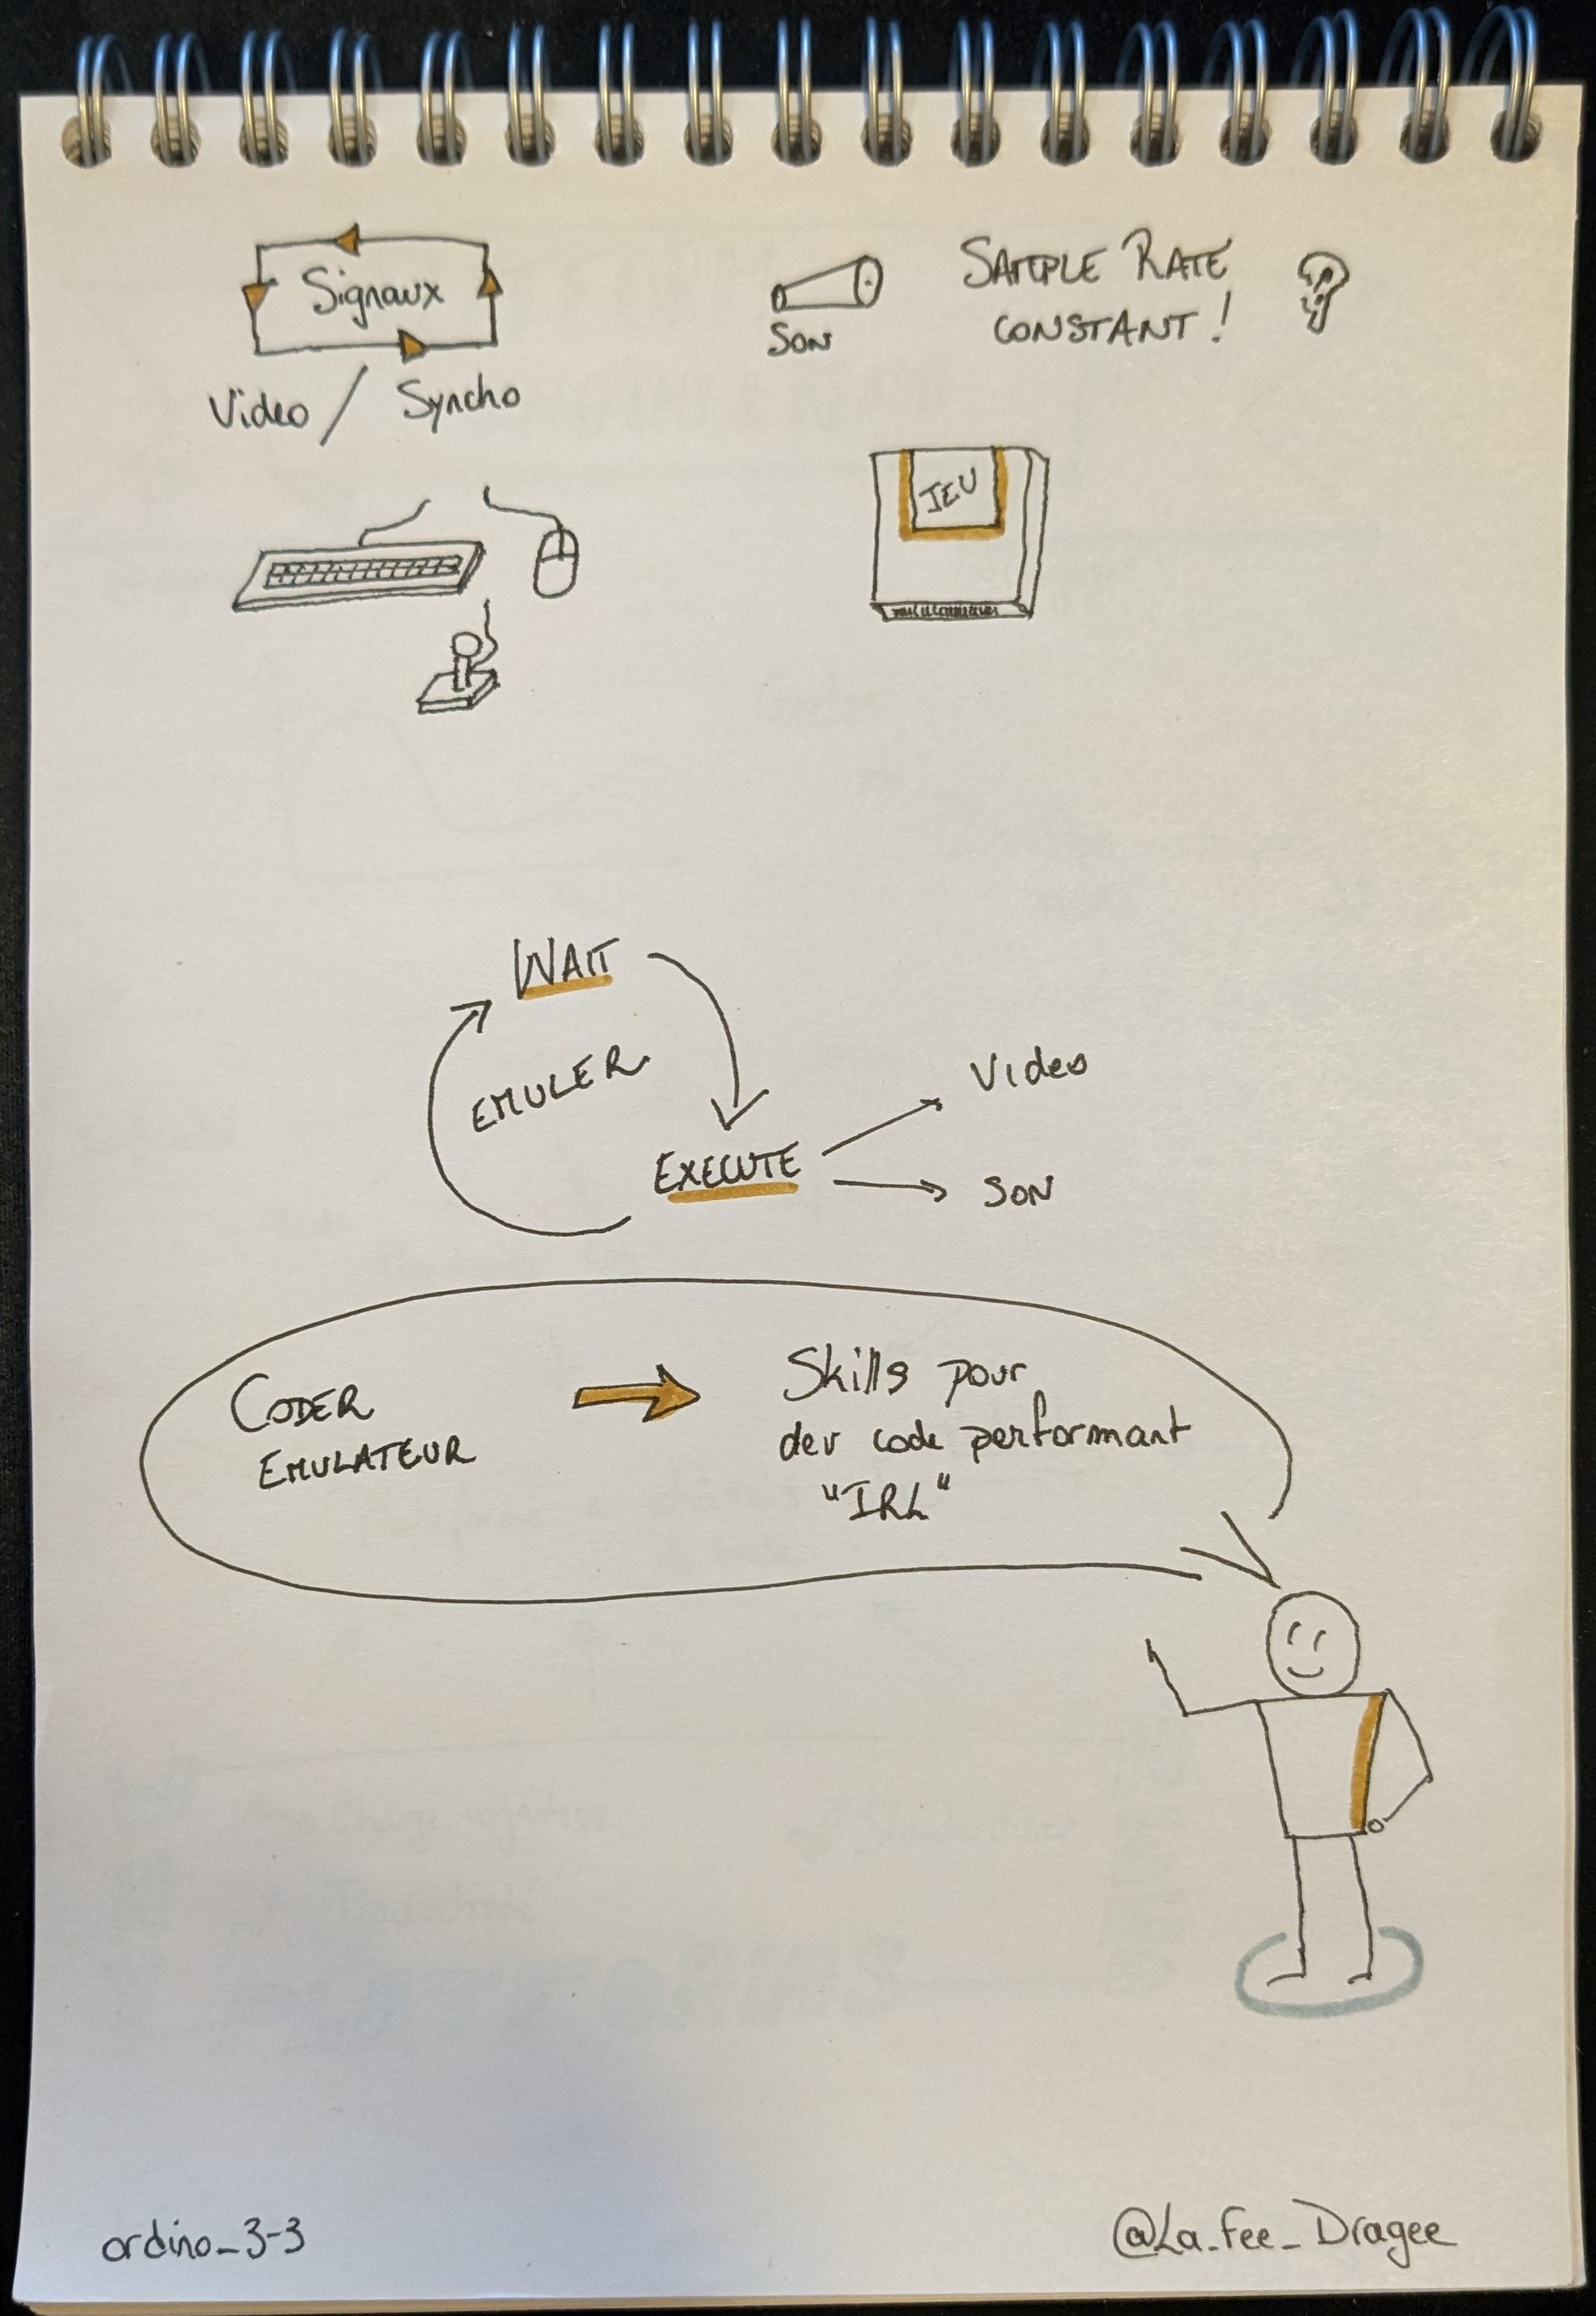 Signaux
Video / Syncho
SON
SAMPLE RATE
CONSTANT !
JEU
WAIT
EMULER
EXECUTE
Video
SON
CODER
EMULATEUR
Skills pour
dev code performant
"IRL"
ordino_3-3
@La_Fee_Dragee